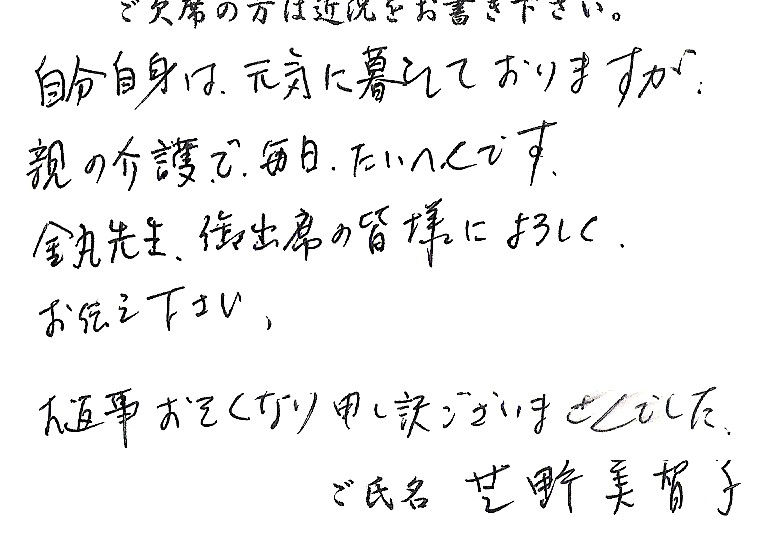 ご欠席の方は近況をお書き下さい。
自分自身は、元気に暮しておりますが、
親の介護で、毎日、たいへんです、
金丸先生、御出席の皆様によろしく、
お伝え下さい、
お返事おそくなり申し訳ございませんでした、
ご氏名 芝野美智子